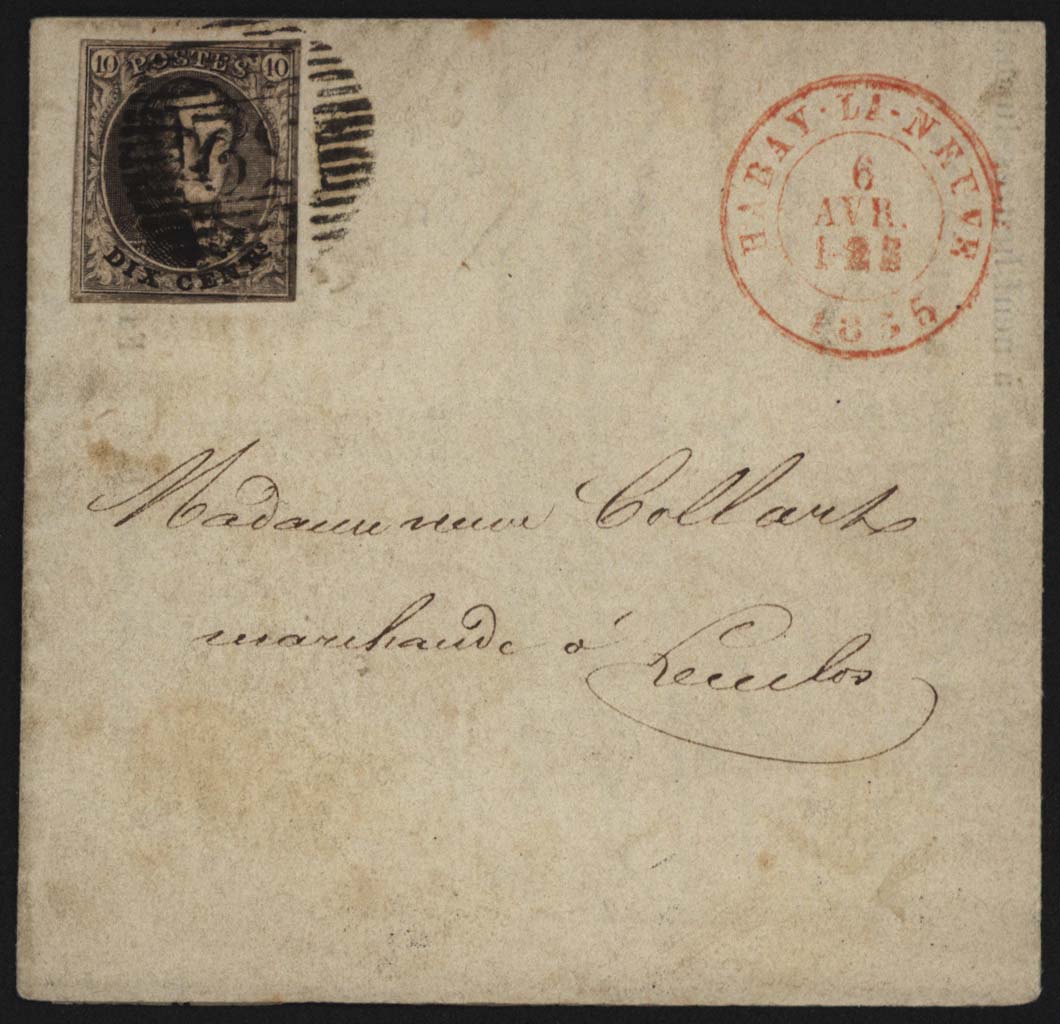 10 POSTES 10
DIX CENTS
HABAY-LA-NEUVE
6
AVR.
1855
Madame veuve Collart
marchande à